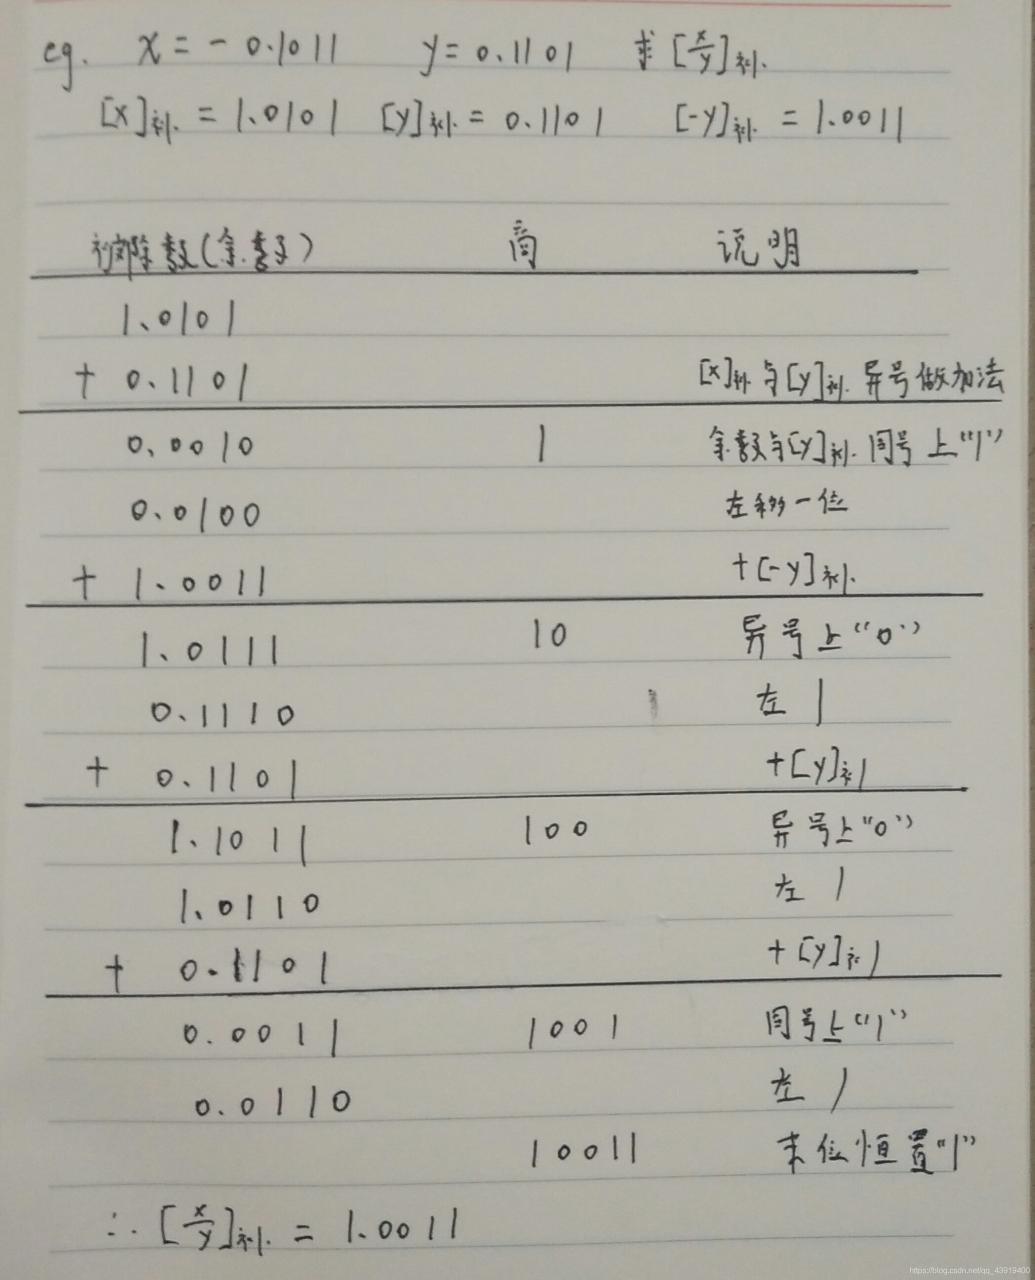 eg. x = - 0.1011 y = 0.1101 求 [x/y]补.
[x]补. = 1.0101 [y]补. = 0.1101 [-y]补. = 1.0011
被除数(余数) 商 说明
1.0101
+ 0.1101 [x]补 与[y]补. 异号做加法
0.0010 1 余数与[y]补. 同号上“1”
0.0100 左移一位
+ 1.0011 +[-y]补.
1.0111 10 异号上“0”
0.1110 左1
+ 0.1101 +[y]补
1.1011 100 异号上“0”
1.0110 左1
+ 0.1101 +[y]补
0.0011 1001 同号上“1”
0.0110 左1
10011 末位恒置“1”
∴ [x/y]补. = 1.0011
https://blog.csdn.net/qq_43919400